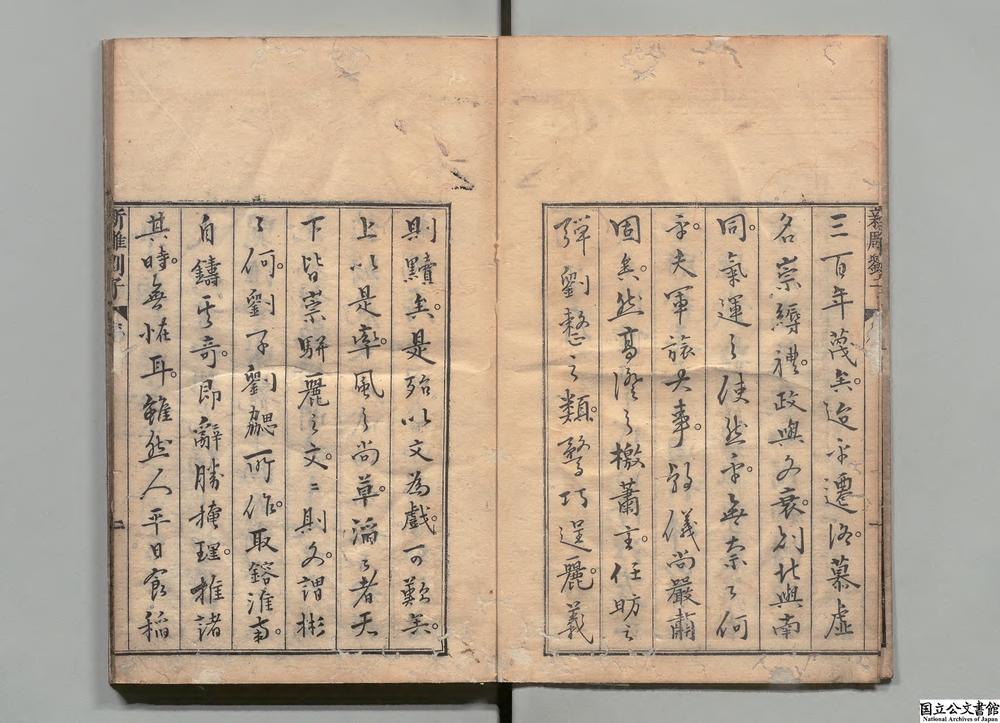 三百年蔑矣。迨乎遷洛。慕虛
名。崇縟禮。政與文衰。則北與南
同。氣運之使然乎。無奈之何
乎。夫軍旅大事。移儀尚嚴肅
固矣。然高澄之檄蕭主。任昉之
彈劉整之類。騖巧逞麗。義
則黷矣。是殆以文為戲。可歎矣。
上以是率。風之尚草。滔々者天
下皆崇駢麗之文。々則文謂彬
々何。劉子劉勰所作。取鎔淮南。
自鑄其奇。即辭勝掩理。推諸
其時。無怪耳。雖然人平日食稻
新雕劉子
二
新雕劉子
一
国立公文書館
National Archives of Japan